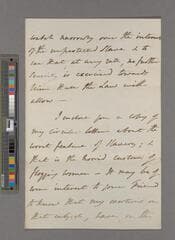 watch narrowly over the interests
of the unprotected Slaves, & to
see that at any rate, no further
Severity is exercised towards
them than the Law will
allow —
I enclose you a copy of
my circular letter about the
worst feature of Slavery; i.e.
that is the horrid custom of
flogging women — It may be of
some interest to your Friend
to know that my motions on
that subject, have, in the